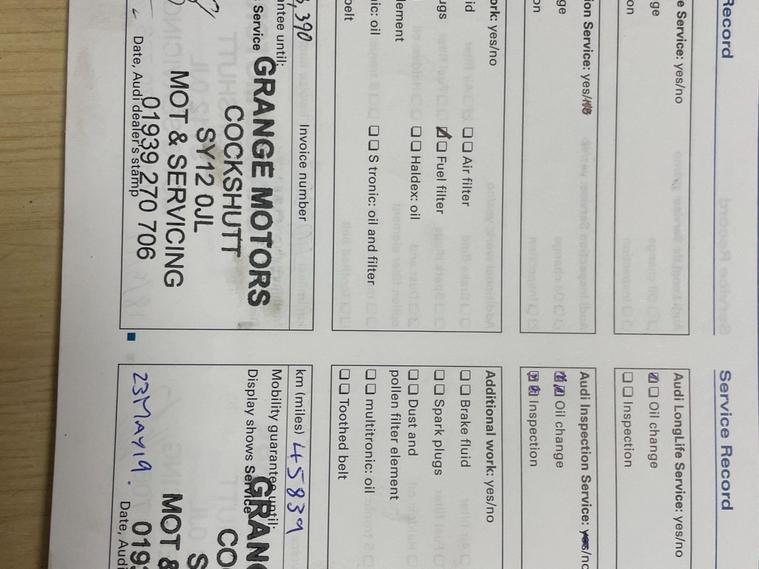 Record
e Service: yes/no
ge
on
ion Service: yes/no
ge
on
ork: yes/no
id
ugs
lement
nic: oil
belt
Air filter
Fuel filter
Haldex: oil
S tronic: oil and filter
,390
Invoice number
ntee until:
Service
GRANGE MOTORS
COCKSHUTT
SY12 0JL
MOT & SERVICING
01939 270 706
Date, Audi dealer's stamp
Service Record
Audi LongLife Service: yes/no
Oil change
Inspection
Audi Inspection Service: yes/no
Oil change
Inspection
Additional work: yes/no
Brake fluid
Spark plugs
Dust and
pollen filter element
multitronic: oil
Toothed belt
km (miles) 45839
Mobility guarantee until:
Display shows Service
GRANG
CO
S
MOT &
0193
23MAY19.
Date, Audi